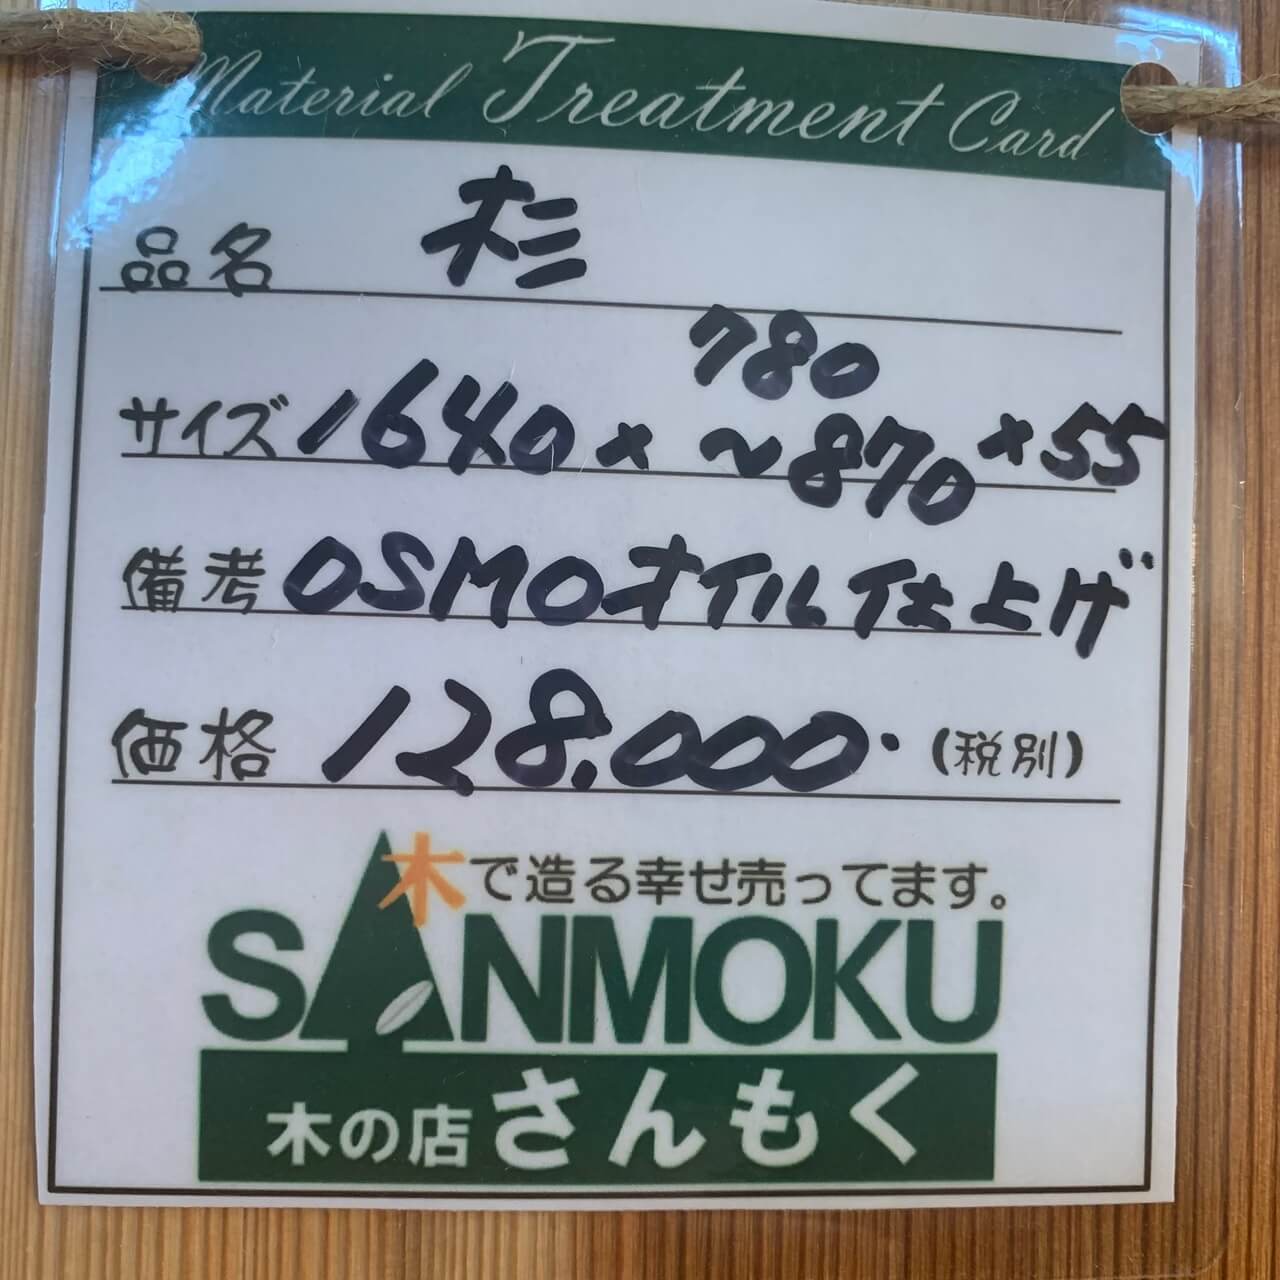 Material Treatment Card
品名 杉
サイズ 1640 × 780 ~870 × 55
備考 OSMOオイル仕上げ
価格 128.000. (税別)
木で造る幸せ売ってます。
SANMOKU
木の店 さんもく